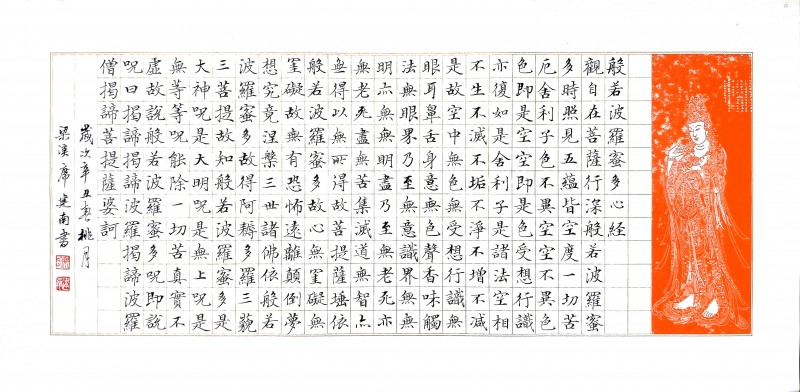 般若波羅蜜多心經
觀自在菩薩行深般若波羅蜜
多時照見五蘊皆空度一切苦
厄舍利子色不異空空不異色
色即是空空即是色受想行識
亦復如是舍利子是諸法空相
不生不滅不垢不淨不增不減
是故空中無色無受想行識無
眼耳鼻舌身意無色聲香味觸
法無眼界乃至無意識界無無
明亦無無明盡乃至無老死亦
無老死盡無苦集滅道無智亦
無得以無所得故菩提薩埵依
般若波羅蜜多故心無罣礙無
罣礙故無有恐怖遠離顛倒夢
想究竟涅槃三世諸佛依般若
波羅蜜多故得阿耨多羅三藐
三菩提故知般若波羅蜜多是
大神呪是大明呪是無上呪是
無等等呪能除一切苦真實不
虛故說般若波羅蜜多呪即說
呪曰揭諦揭諦波羅揭諦波羅
僧揭諦菩提薩婆訶
歲次辛丑春桃月
梁溪席建南書